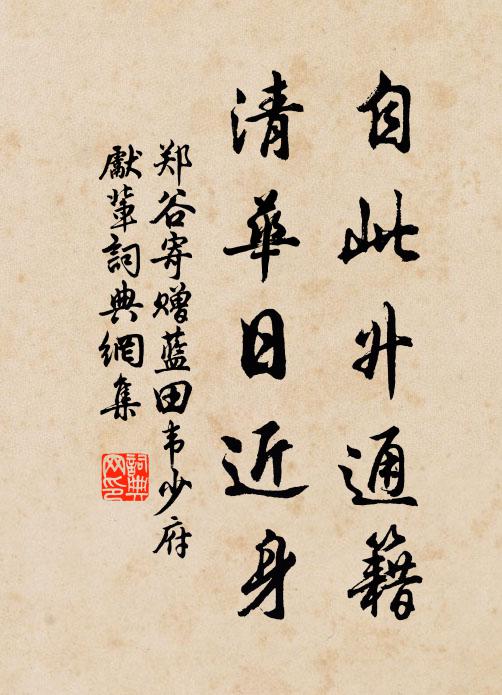 自此升通籍
清華日近身
郑谷寄赠蓝田韦少府
獻輩詞典網集
詞典网印